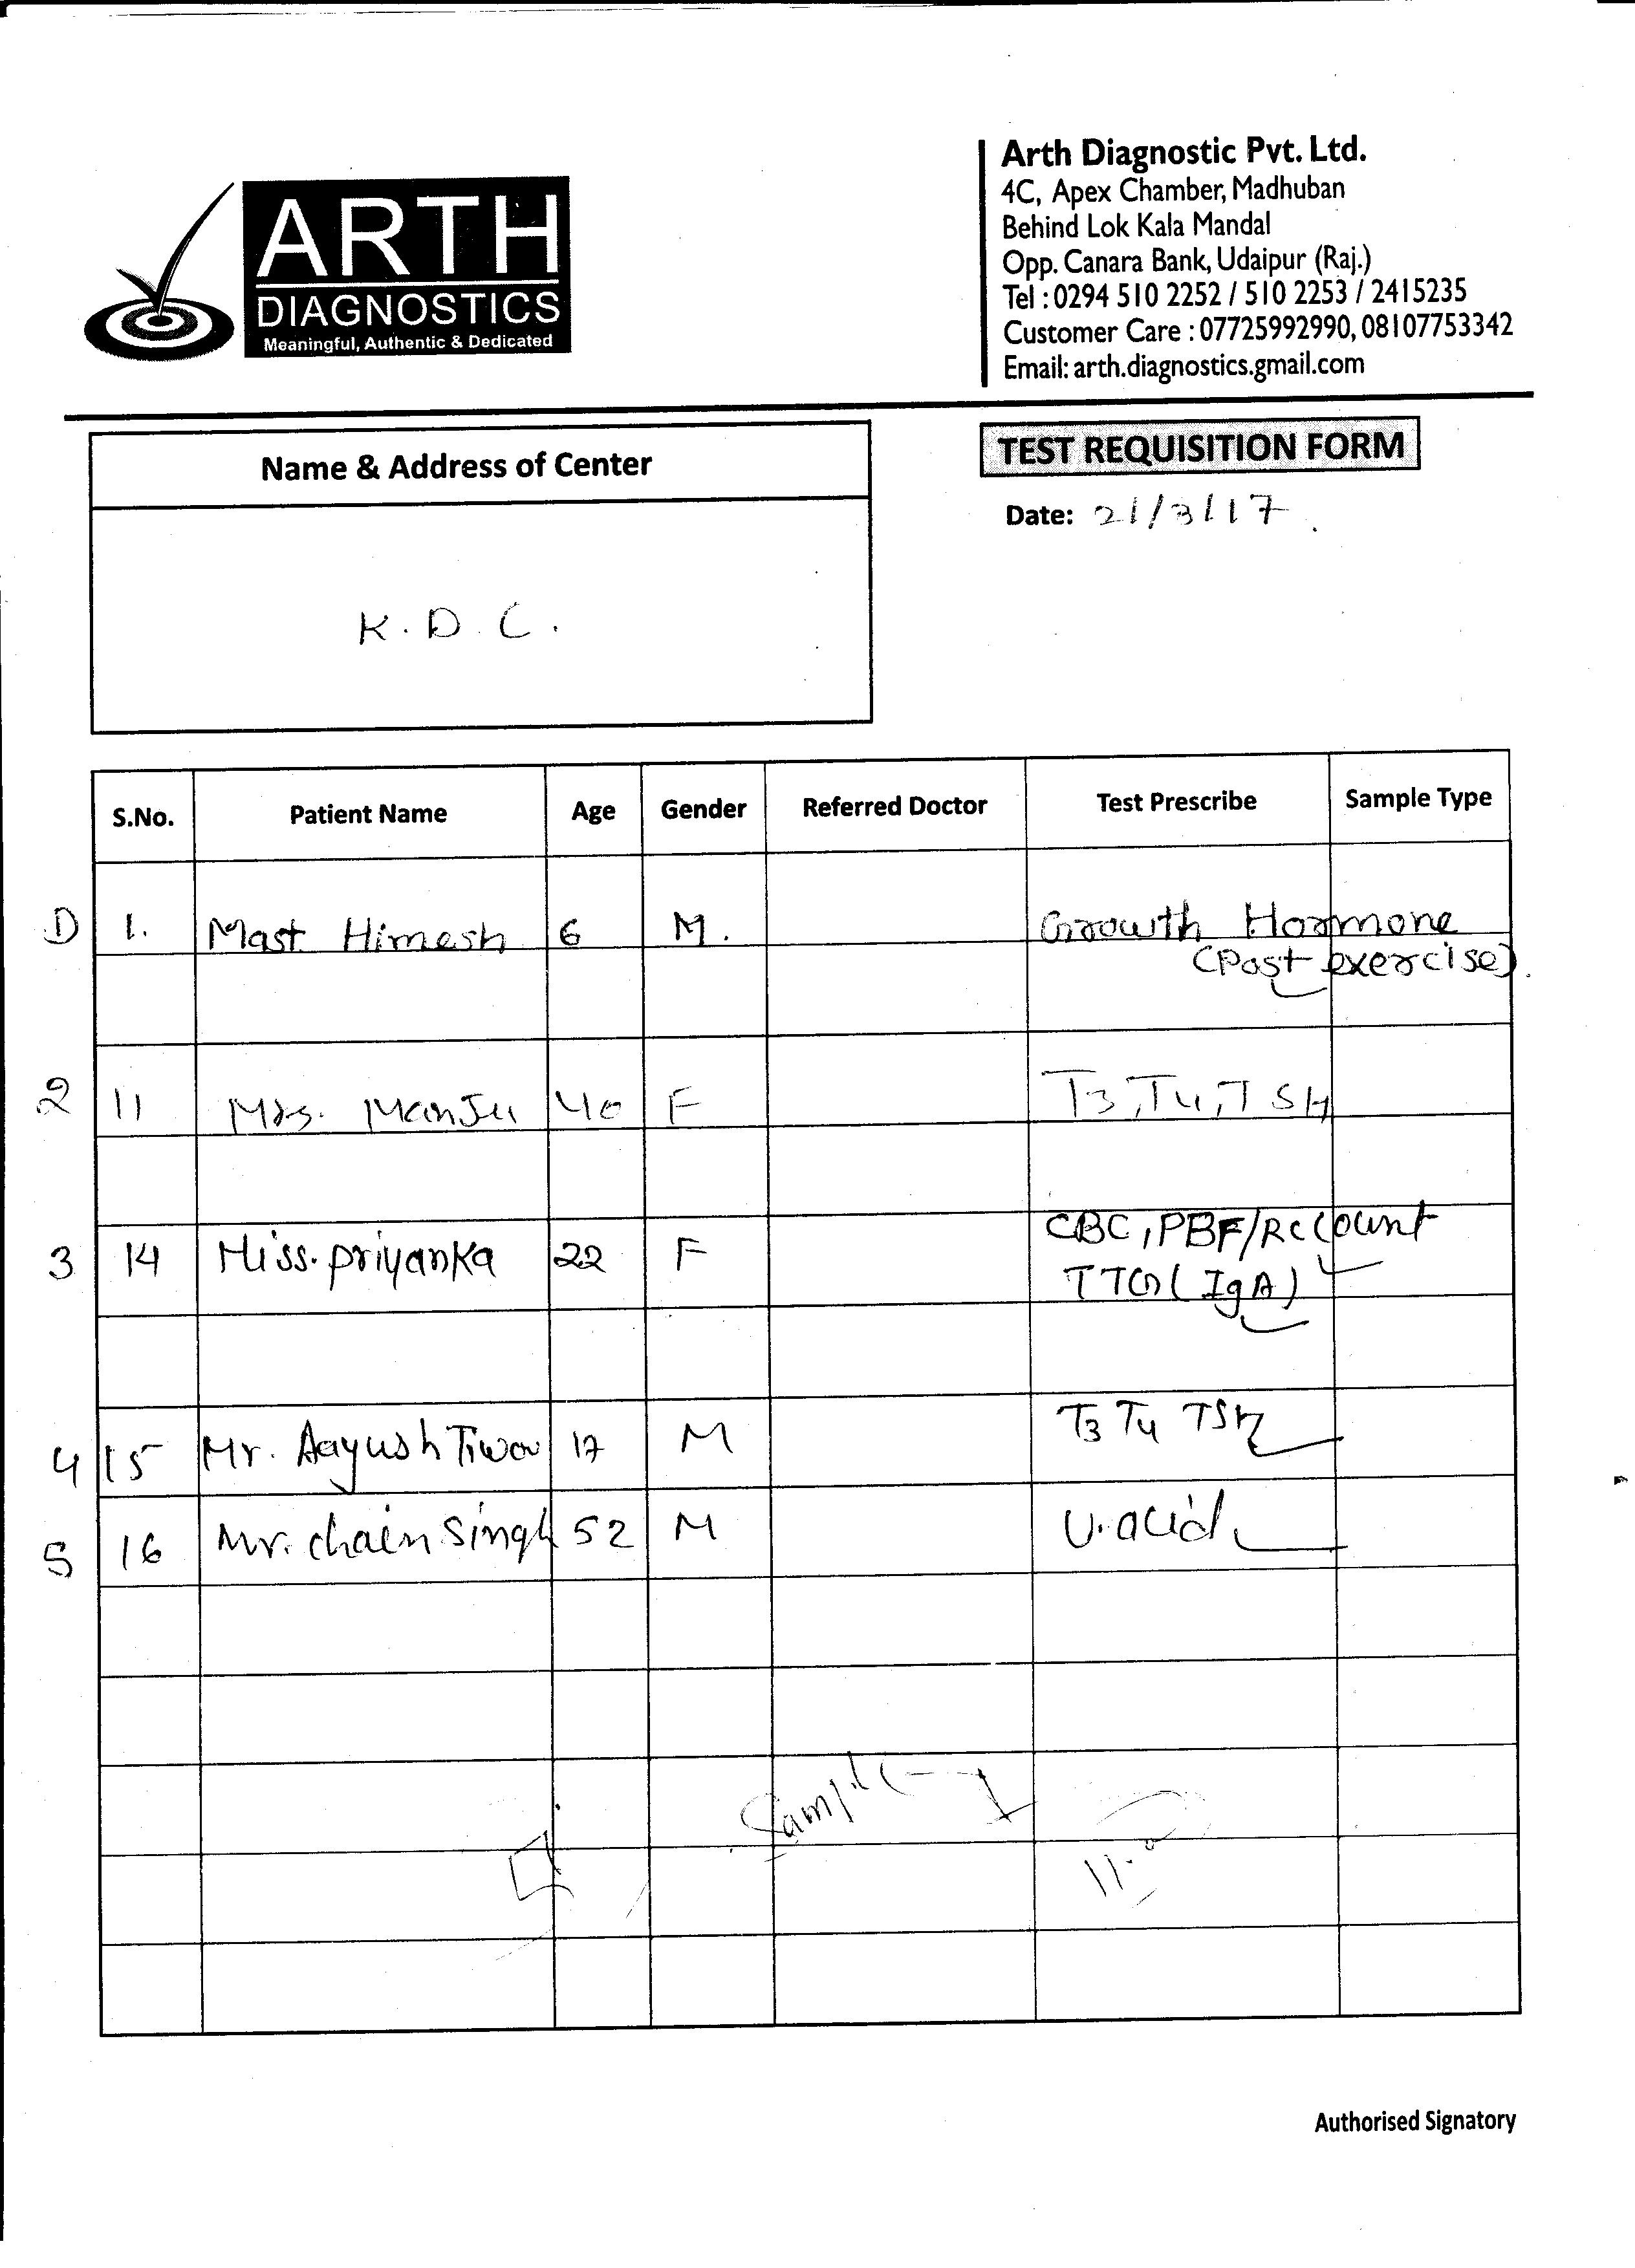 ARTH
DIAGNOSTICS
Meaningful, Authentic & Dedicated
Arth Diagnostic Pvt. Ltd.
4C, Apex Chamber, Madhuban
Behind Lok Kala Mandal
Opp. Canara Bank, Udaipur (Raj.)
Tel : 0294 510 2252 / 510 2253 / 2415235
Customer Care : 07725992990, 08107753342
Email: arth.diagnostics.gmail.com
Name & Address of Center
K.D.C.
TEST REQUISITION FORM
Date: 21/3/17
S.No. Patient Name Age Gender Referred Doctor Test Prescribe Sample Type
1. Mast Himesh 6 M. Growth Hormone
(Post exercise).
2 11 Mrs. Manju 40 F T3, T4, TSH
3 14 Miss. Priyanka 22 F CBC, PBF/RC Count
TTG (IgA)
4 15 Mr. Aayush Tiwari 17 M T3 T4 TSH
5 16 Mr. chain singh 52 M U. acid
Sample
Authorised Signatory